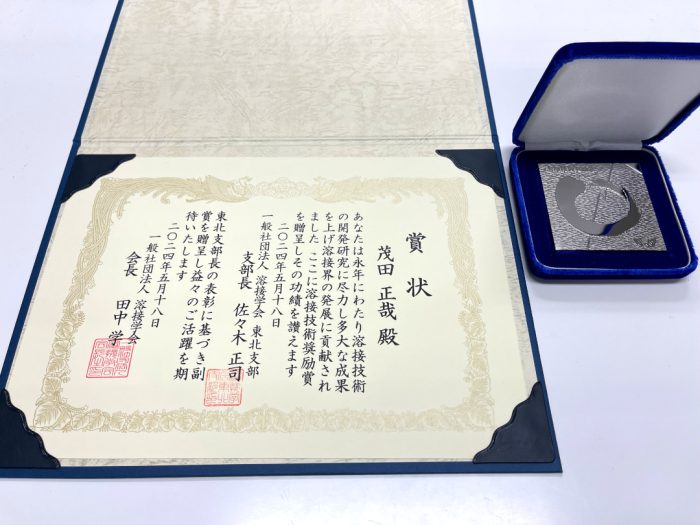 賞状
茂田 正哉 殿
あなたは永年にわたり溶接技術
の開発研究に尽力し多大な成果
を上げ溶接界の発展に貢献され
ました ここに溶接技術奨励賞
を贈呈しその功績を讃えます
二〇二四年五月十八日
一般社団法人 溶接学会 東北支部
支部長 佐々木 正司
東北支部長の表彰に基づき副
賞を贈呈し益々のご活躍を期
待いたします
二〇二四年五月十八日
一般社団法人 溶接学会
会長 田中 学